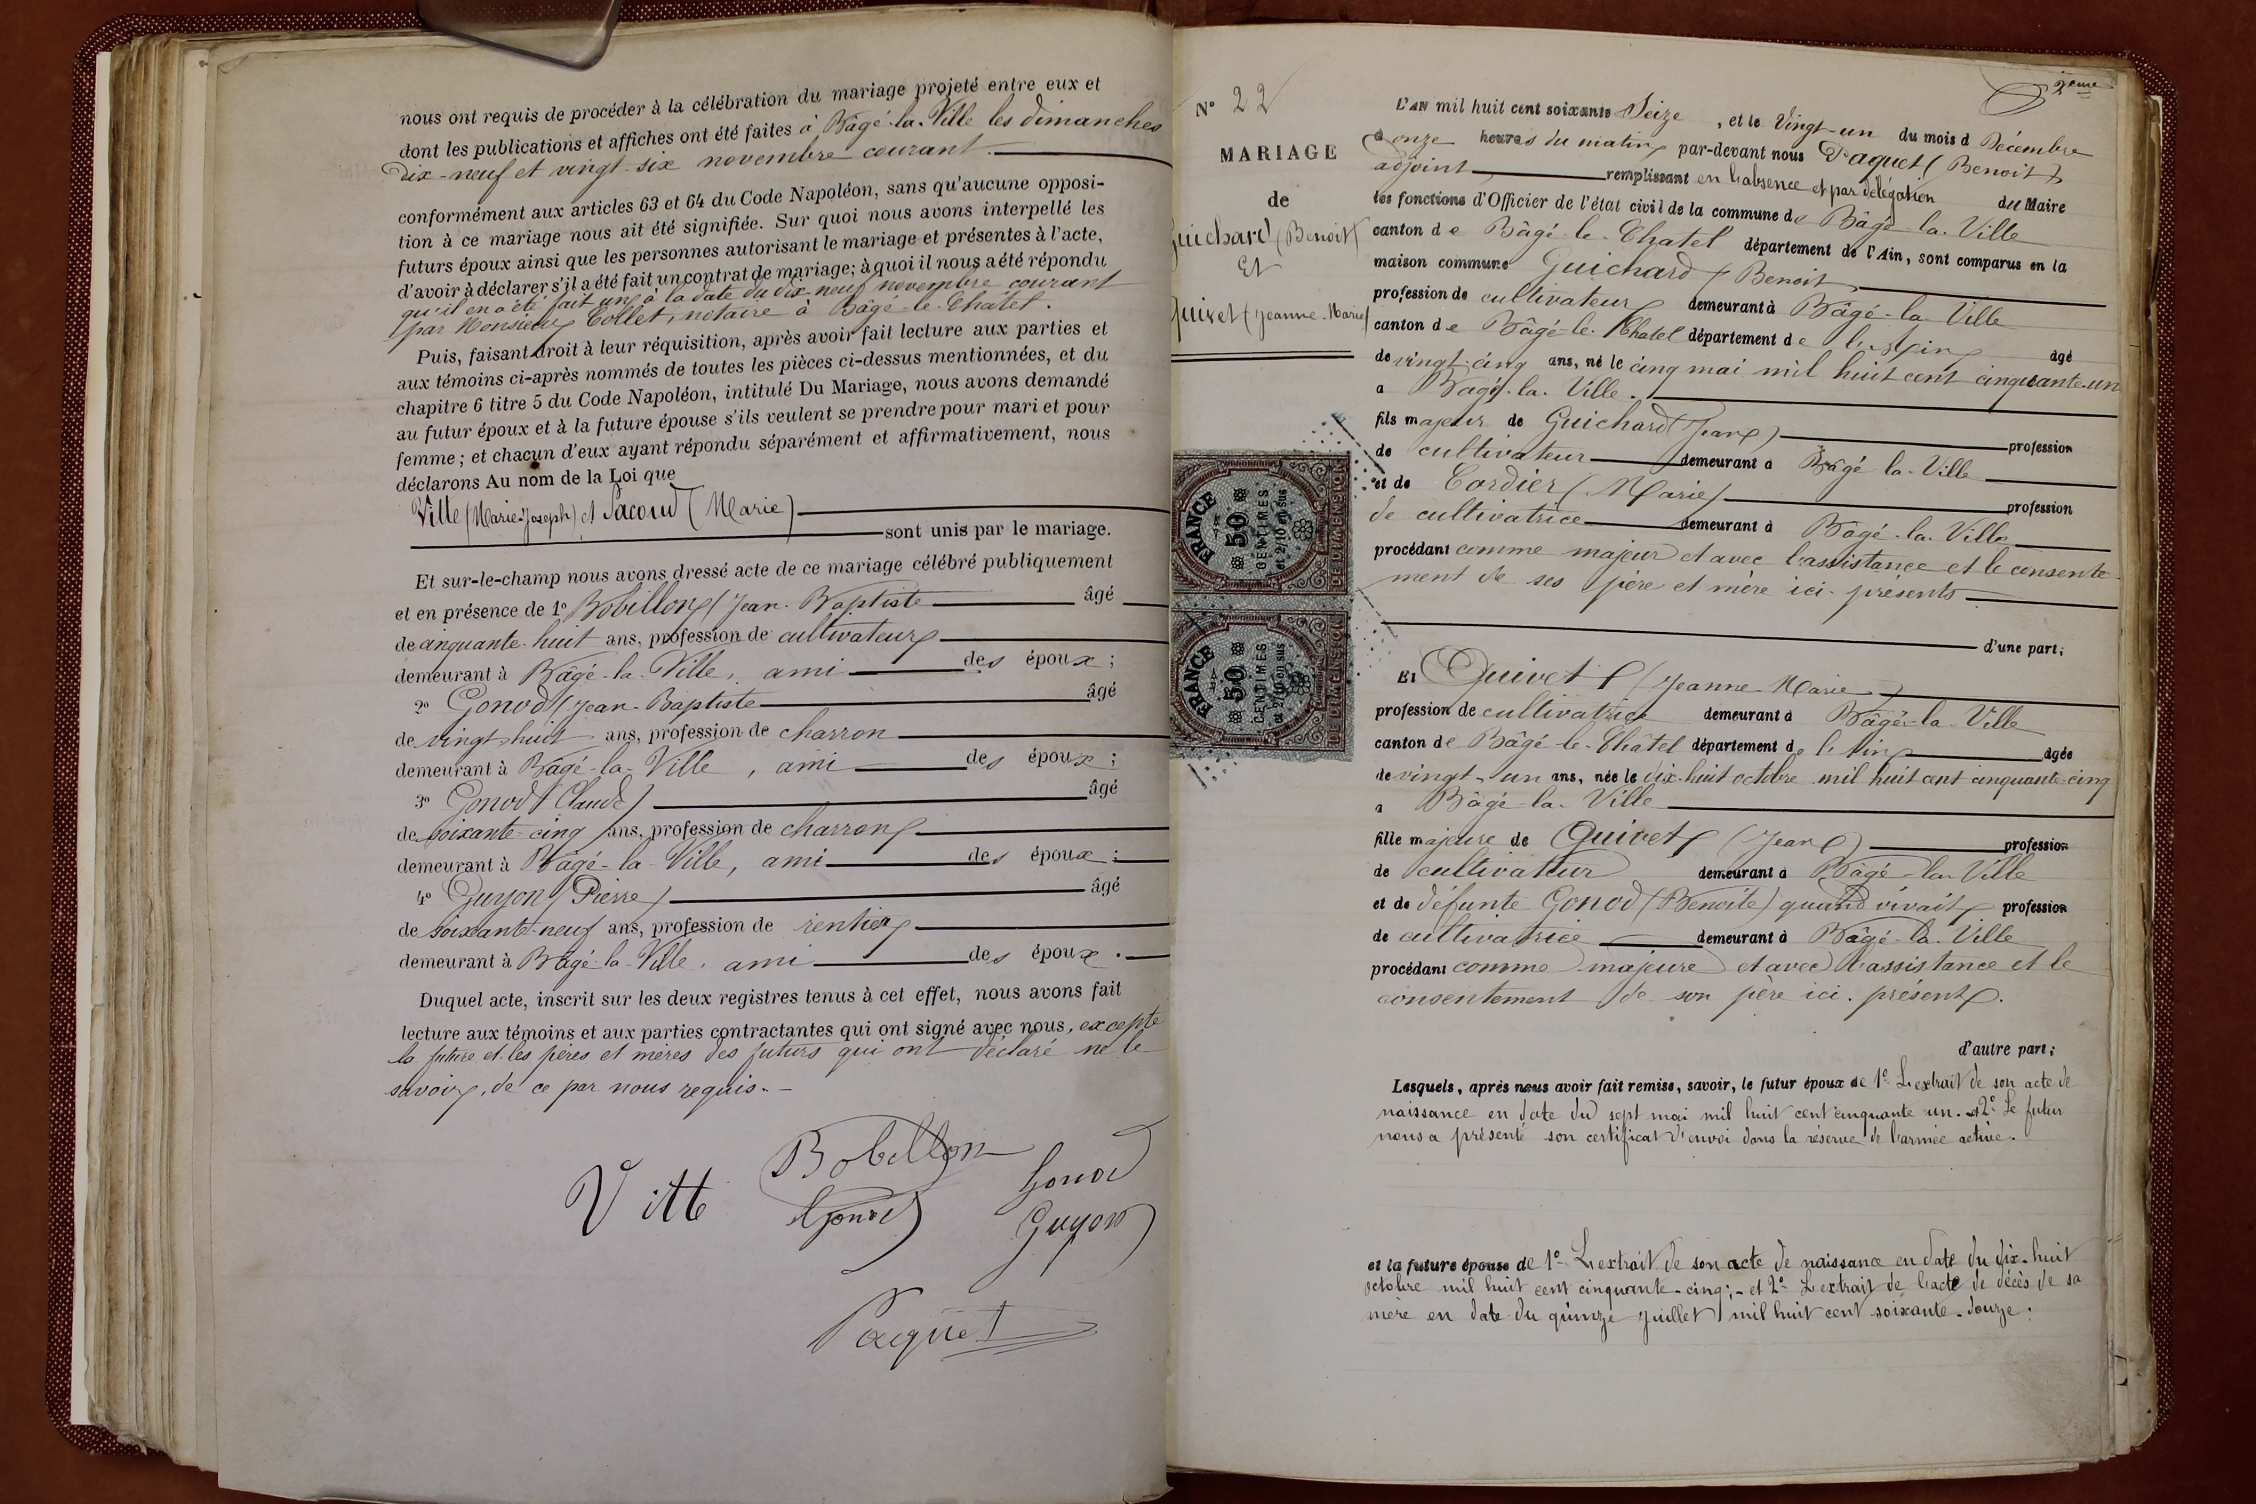 nous ont requis de procéder à la célébration du mariage projeté entre eux et
dont les publications et affiches ont été faites à Bâgé-la-Ville les dimanches
dix-neuf et vingt-six novembre courant.
conformément aux articles 63 et 64 du Code Napoléon, sans qu'aucune opposi-
tion à ce mariage nous ait été signifiée. Sur quoi nous avons interpellé les
futurs époux ainsi que les personnes autorisant le mariage et présentes à l'acte,
d'avoir à déclarer s'il a été fait un contrat de mariage; à quoi il nous a été répondu
qu'il en a été fait un, à la date du dix-neuf novembre courant
par Monsieur Collet, notaire à Bâgé-le-Chatel.
Puis, faisant droit à leur réquisition, après avoir fait lecture aux parties et
aux témoins ci-après nommés de toutes les pièces ci-dessus mentionnées, et du
chapitre 6 titre 5 du Code Napoléon, intitulé Du Mariage, nous avons demandé
au futur époux et à la future épouse s'ils veulent se prendre pour mari et pour
femme; et chacun d'eux ayant répondu séparément et affirmativement, nous
déclarons Au nom de la Loi que
Ville (Marie-Joseph) et Pacoud (Marie)
sont unis par le mariage.
Et sur-le-champ nous avons dressé acte de ce mariage célébré publiquement
et en présence de 1º Bobillon (Jean-Baptiste âgé
de cinquante-huit ans, profession de cultivateur
demeurant à Bâgé-la-Ville, ami des époux;
2º Gonod (Jean-Baptiste âgé
de vingt-huit ans, profession de charron
demeurant à Bâgé-la-Ville, ami des époux;
3º Gonod (Claude) âgé
de soixante-cinq ans, profession de charron
demeurant à Bâgé-la-Ville, ami des époux;
4º Guyon (Pierre) âgé
de soixante-neuf ans, profession de rentier
demeurant à Bâgé-la-Ville, ami des époux.
Duquel acte, inscrit sur les deux registres tenus à cet effet, nous avons fait
lecture aux témoins et aux parties contractantes qui ont signé avec nous, excepté
la future et les pères et mères des futurs qui ont déclaré ne le
savoir, de ce par nous requis.
Bobillon
Vitte Gonod
Gonod Guyon
Paquet
2ème
Nº 22
MARIAGE
de
Guichard (Benoit)
Et
Quivet (Jeanne-Marie)
FRANCE
50
CENTIMES
et 2/10 en sus
DE DIMENSION
FRANCE
50
CENTIMES
et 2/10 en sus
DE DIMENSION
L'AN mil huit cent soixante Seize, et le Vingt-un du mois d Décembre
à onze heures du matin, par-devant nous Paquet (Benoit)
adjoint remplissant en l'absence et par délégation du Maire
les fonctions d'Officier de l'état civil de la commune de Bâgé-la-Ville
canton de Bâgé-le-Chatel département de l'Ain, sont comparus en la
maison commune Guichard (Benoit
profession de cultivateur demeurant à Bâgé-la-Ville
canton de Bâgé-le-Chatel département de l'Ain âgé
de vingt-cinq ans, né le cinq mai mil huit cent cinquante-un
a Bâgé-la-Ville.
fils majeur de Guichard (Jean) profession
de cultivateur demeurant à Bâgé-la-Ville
et de Cordier (Marie) profession
de cultivatrice demeurant à Bâgé-la-Ville
procédant comme majeur et avec l'assistance et le consente-
ment de ses père et mère ici présents
d'une part;
Et Quivet (Jeanne-Marie)
profession de cultivatrice demeurant à Bâgé-la-Ville
canton de Bâgé-le-Châtel département de l'Ain agée
de vingt-un ans, née le dix-huit octobre mil huit cent cinquante-cinq
a Bâgé-la-Ville
fille majeure de Quivet (Jean) profession
de cultivateur demeurant à Bâgé-la-Ville
et de défunte Gonod (Benoîte) quand vivait profession
de cultivatrice demeurant à Bâgé-la-Ville
procédant comme majeure et avec l'assistance et le
consentement de son père ici présent.
d'autre part;
Lesquels, après nous avoir fait remise, savoir, le futur époux de 1º L'extrait de son acte de
naissance en date du sept mai mil huit cent cinquante un. et 2º Le futur
nous a présenté son certificat d'envoi dans la réserve de l'armée active.
et la future épouse de 1º L'extrait de son acte de naissance en date du dix-huit
octobre mil huit cent cinquante-cinq; et 2º L'extrait de l'acte de décès de sa
mère en date du quinze juillet mil huit cent soixante-douze.